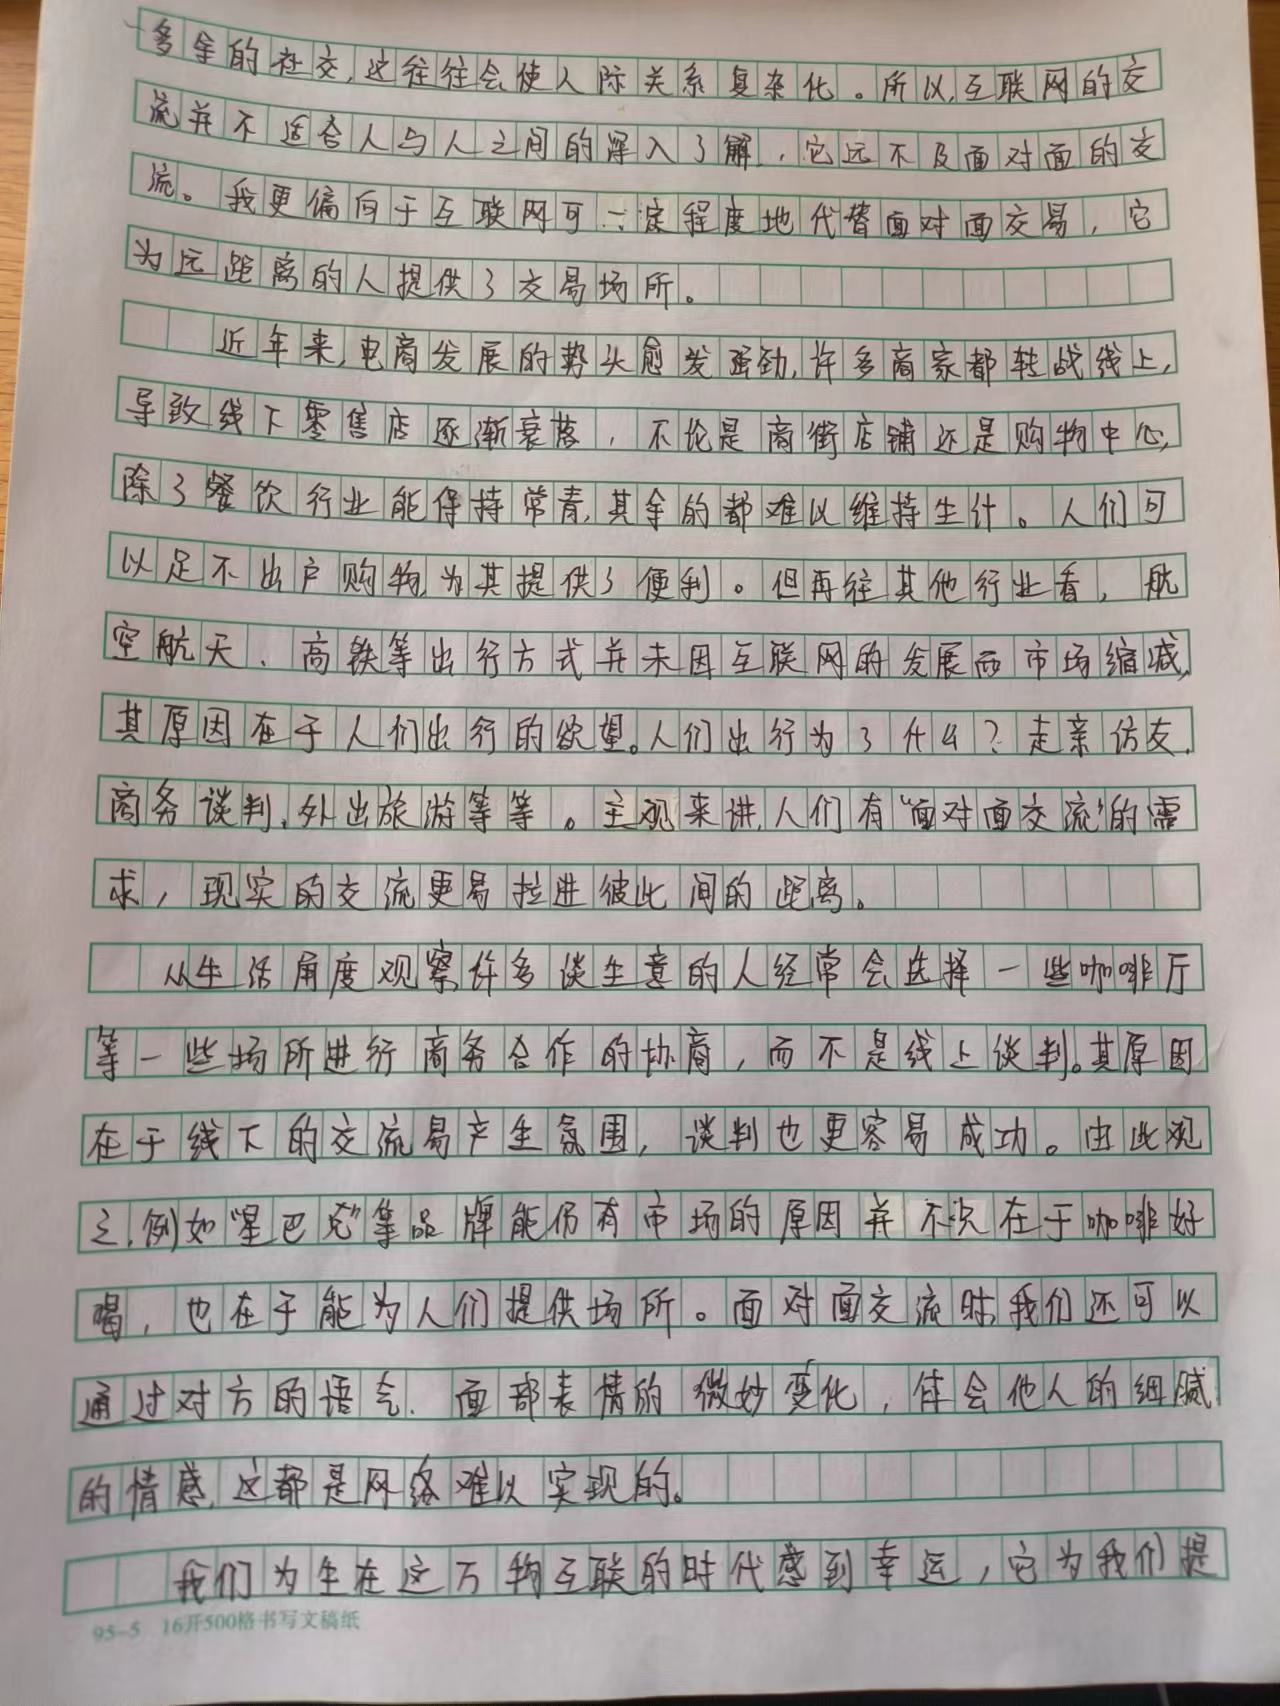 多余的社交，这往往会使人际关系复杂化。所以，互联网的交
流并不适合人与人之间的深入了解，它远不及面对面的交
流。我更偏向于互联网可一定程度地代替面对面交易，它
为远距离的人提供了交易场所。
近年来，电商发展的势头愈发强劲，许多商家都转战线上，
导致线下零售店逐渐衰落，不论是商街店铺还是购物中心，
除了餐饮行业能保持常青，其余的都难以维持生计。人们可
以足不出户购物，为其提供了便利。但再往其他行业看，航
空航天、高铁等出行方式并未因互联网的发展而市场缩减，
其原因在于人们出行的欲望。人们出行为了什么？走亲访友、
商务谈判、外出旅游等等。主观来讲，人们有“面对面交流”的需
求，现实的交流更易拉进彼此间的距离。
从生活角度观察，许多谈生意的人经常会选择一些咖啡厅
等一些场所进行商务合作的协商，而不是线上谈判。其原因
在于线下的交流易产生氛围，谈判也更容易成功。由此观
之，例如“星巴克”等品牌能仍有市场的原因并不只在于咖啡好
喝，也在于能为人们提供场所。面对面交流时，我们还可以
通过对方的语气、面部表情的微妙变化，体会他人的细腻
的情感，这都是网络难以实现的。
我们为生在这万物互联的时代感到幸运，它为我们提
95-5 16开500格书写文稿纸